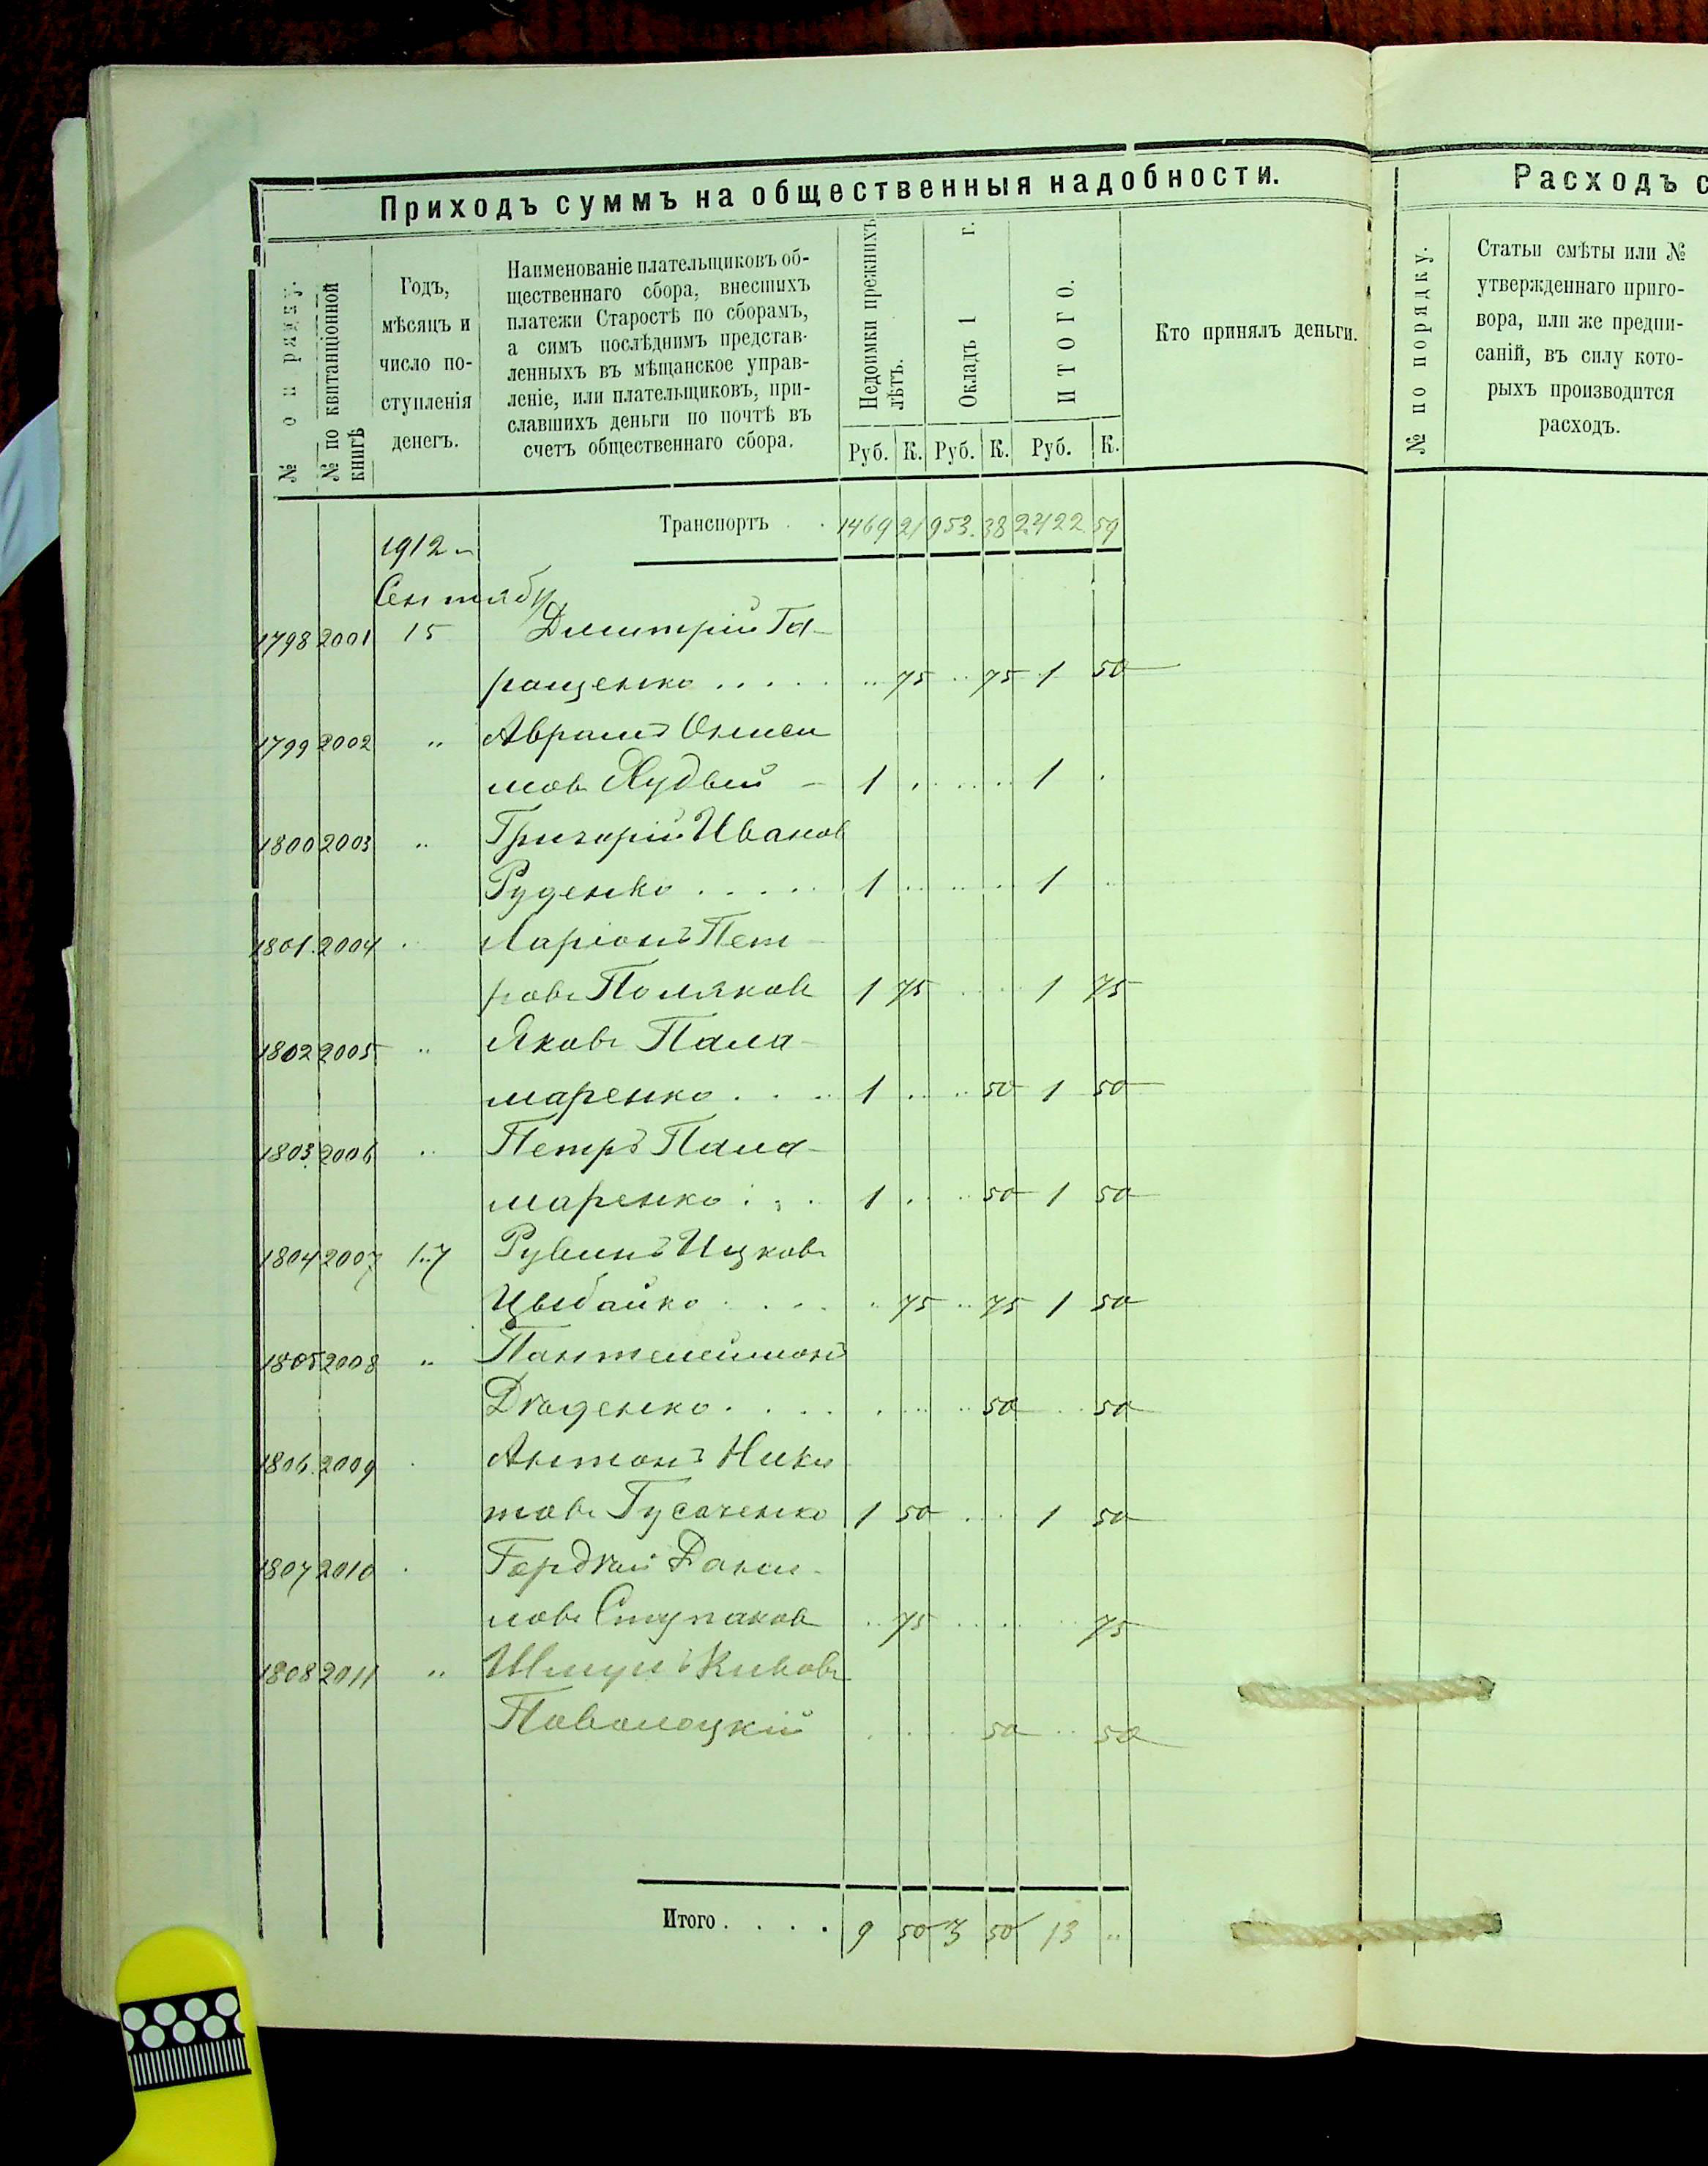 Приходъ суммъ на общественныя надобности.
№ по порядку.
№ по квитанціонной книгѣ
Годъ,
мѣсяцъ и
число по-
ступленія
денегъ.
Наименованіе плательщиковъ об-
щественнаго сбора, внесшихъ
платежи Старостѣ по сборамъ,
а симъ послѣднимъ представ-
ленныхъ въ мѣщанское управ-
леніе, или плательщиковъ, при-
славшихъ деньги по почтѣ въ
счетъ общественнаго сбора.
Недоимки прежнихъ лѣтъ.
Окладъ 1 г.
ИТОГО.
Руб. К. Руб. К. Руб. К.
Кто принялъ деньги.
Транспортъ . . 1469 21 953. 38 2422 59
1912
Сентябр
1798 2001 15 Дмитрій Га-
ращенко . . . . . 75 75 1 50
1799 2002 " Аврамъ
мовъ 1 1
1800 2003 " Григорій Иванов
Руденко . . . . . 1 1
1801. 2004 Ларіонъ Пет
ровъ Поляков 1 75 1 75
1802 2005 " Яковъ Пала-
маренко . . . 1 50 1 50
1803. 2006 " Петръ Пала-
маренко . . . 1 50 1 50
1804 2007 17 Рувинъ Ицковъ
Цыбайко . . . . 75 75 1 50
1805 2008 " Пантелеймонъ
Дяденко . . . . 50 50
1806. 2009 Антонъ Ники
товъ Гусаченко 1 50 1 50
1807 2010 Гордѣй Дани-
ловъ Ступаков 75 75
1808 2011 "
Паволоцкій 50 50
Итого . . . . 9 50 3 50 13 "
Расходъ с
№ по порядку.
Статьи смѣты или №
утвержденнаго приго-
вора, или же предпи-
саній, въ силу кото-
рыхъ производится
расходъ.